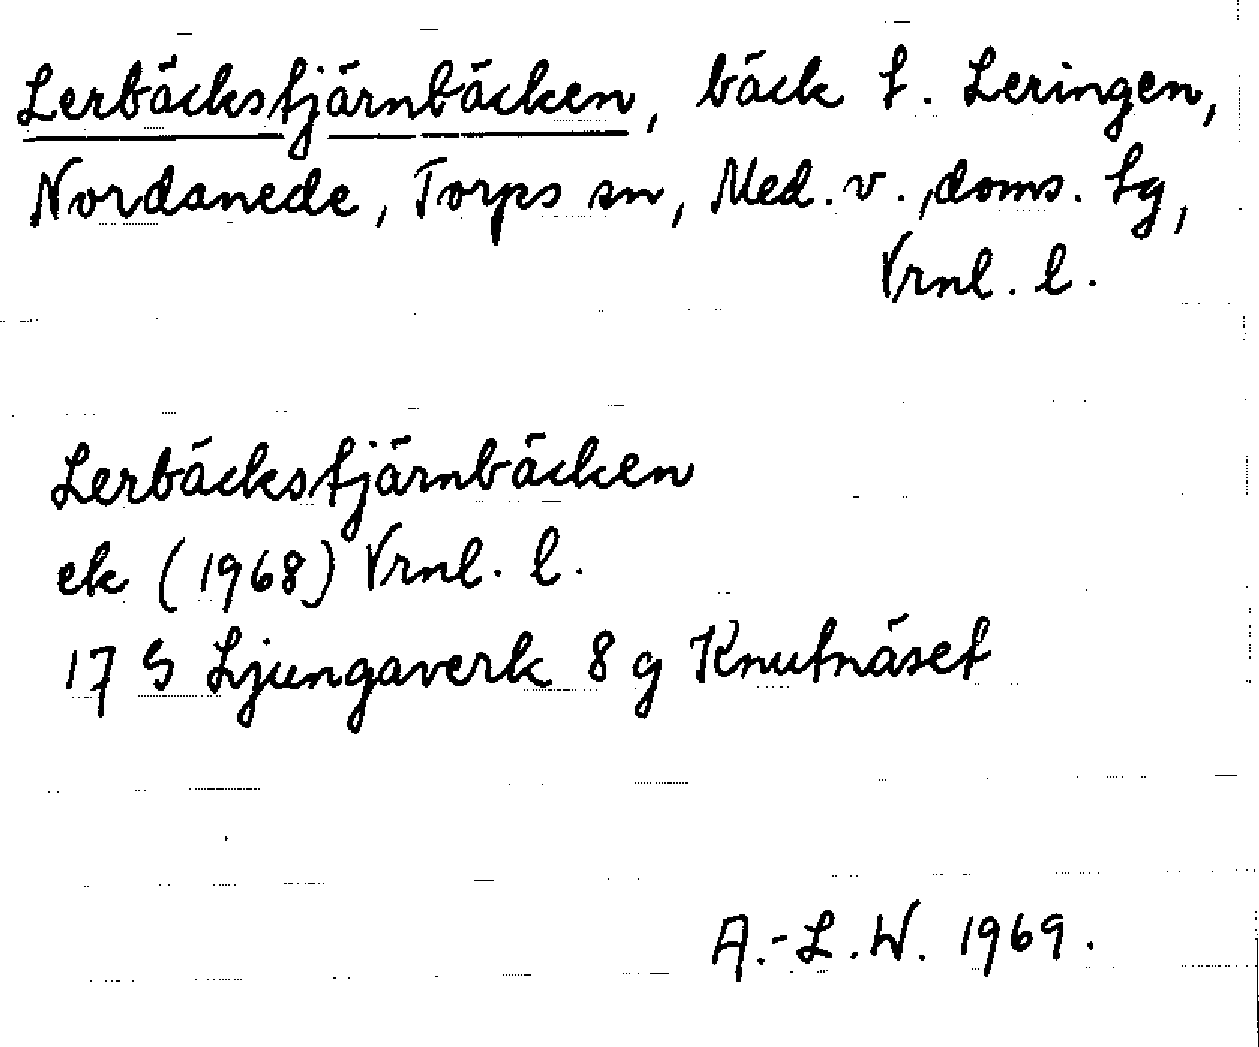 Lerbäckstjärnbäcken, bäck t. Leringen,
Nordanede, Torps sn, Med. v. doms. tg,
Vrnl. l.
Lerbäckstjärnbäcken
ek (1968) Vrnl. l.
17 G Ljungaverk 8 g Knutnäset
A.-L.W. 1969.